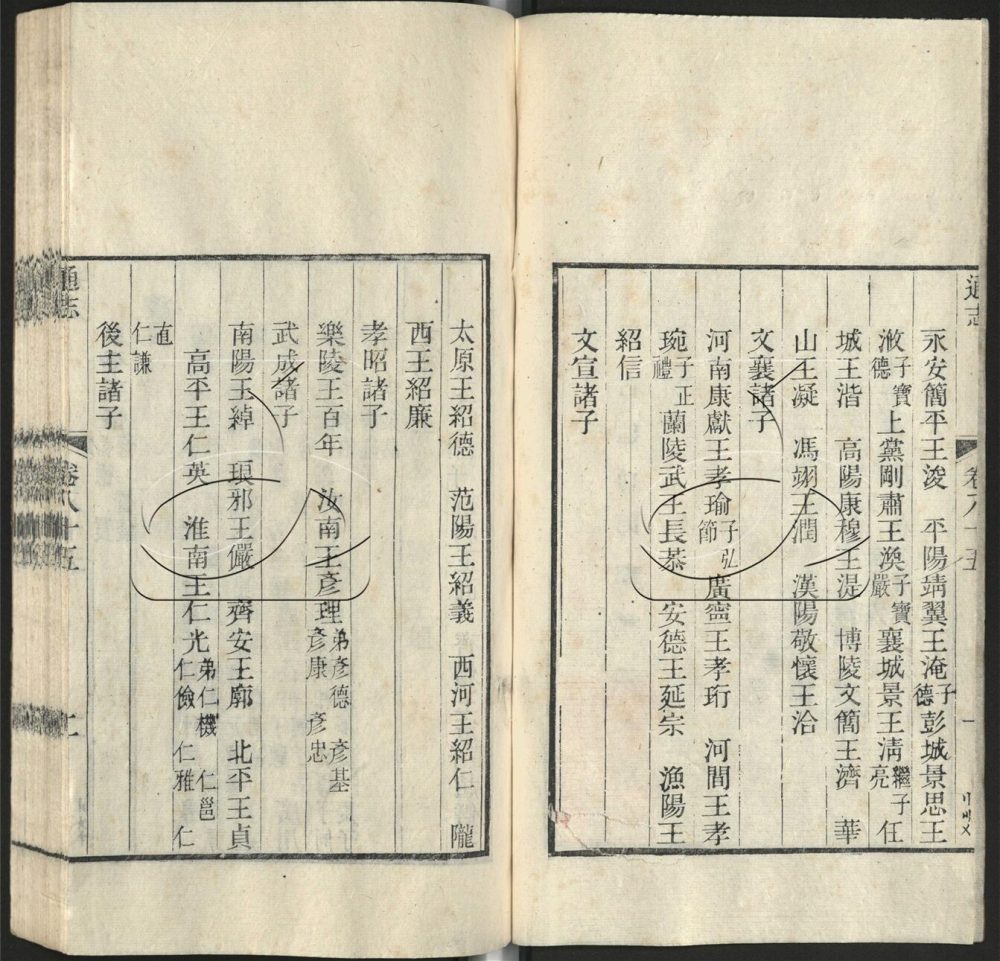 通志
卷八十五
一
永安簡平王浚 平陽靖翼王淹子德彭城景思王
浟子寶德上黨剛肅王渙子寶嚴襄城景王淯繼子任亮
城王湝 高陽康穆王湜 博陵文簡王濟 華
山王凝 馮翊王潤 漢陽敬懷王洽
文襄諸子
河南康獻王孝瑜子弘節廣寧王孝珩 河間王孝
琬子正禮蘭陵武王長恭 安德王延宗 漁陽王
紹信
文宣諸子
太原王紹德 范陽王紹義 西河王紹仁 隴
西王紹廉
孝昭諸子
樂陵王百年 汝南王彥理弟彥德 彥基彥康 彥忠
武成諸子
南陽王綽 琅邪王儼 齊安王廓 北平王貞
高平王仁英 淮南王仁光弟仁機 仁邕仁儉 仁雅 仁
直仁謙
後主諸子
通志
卷八十五